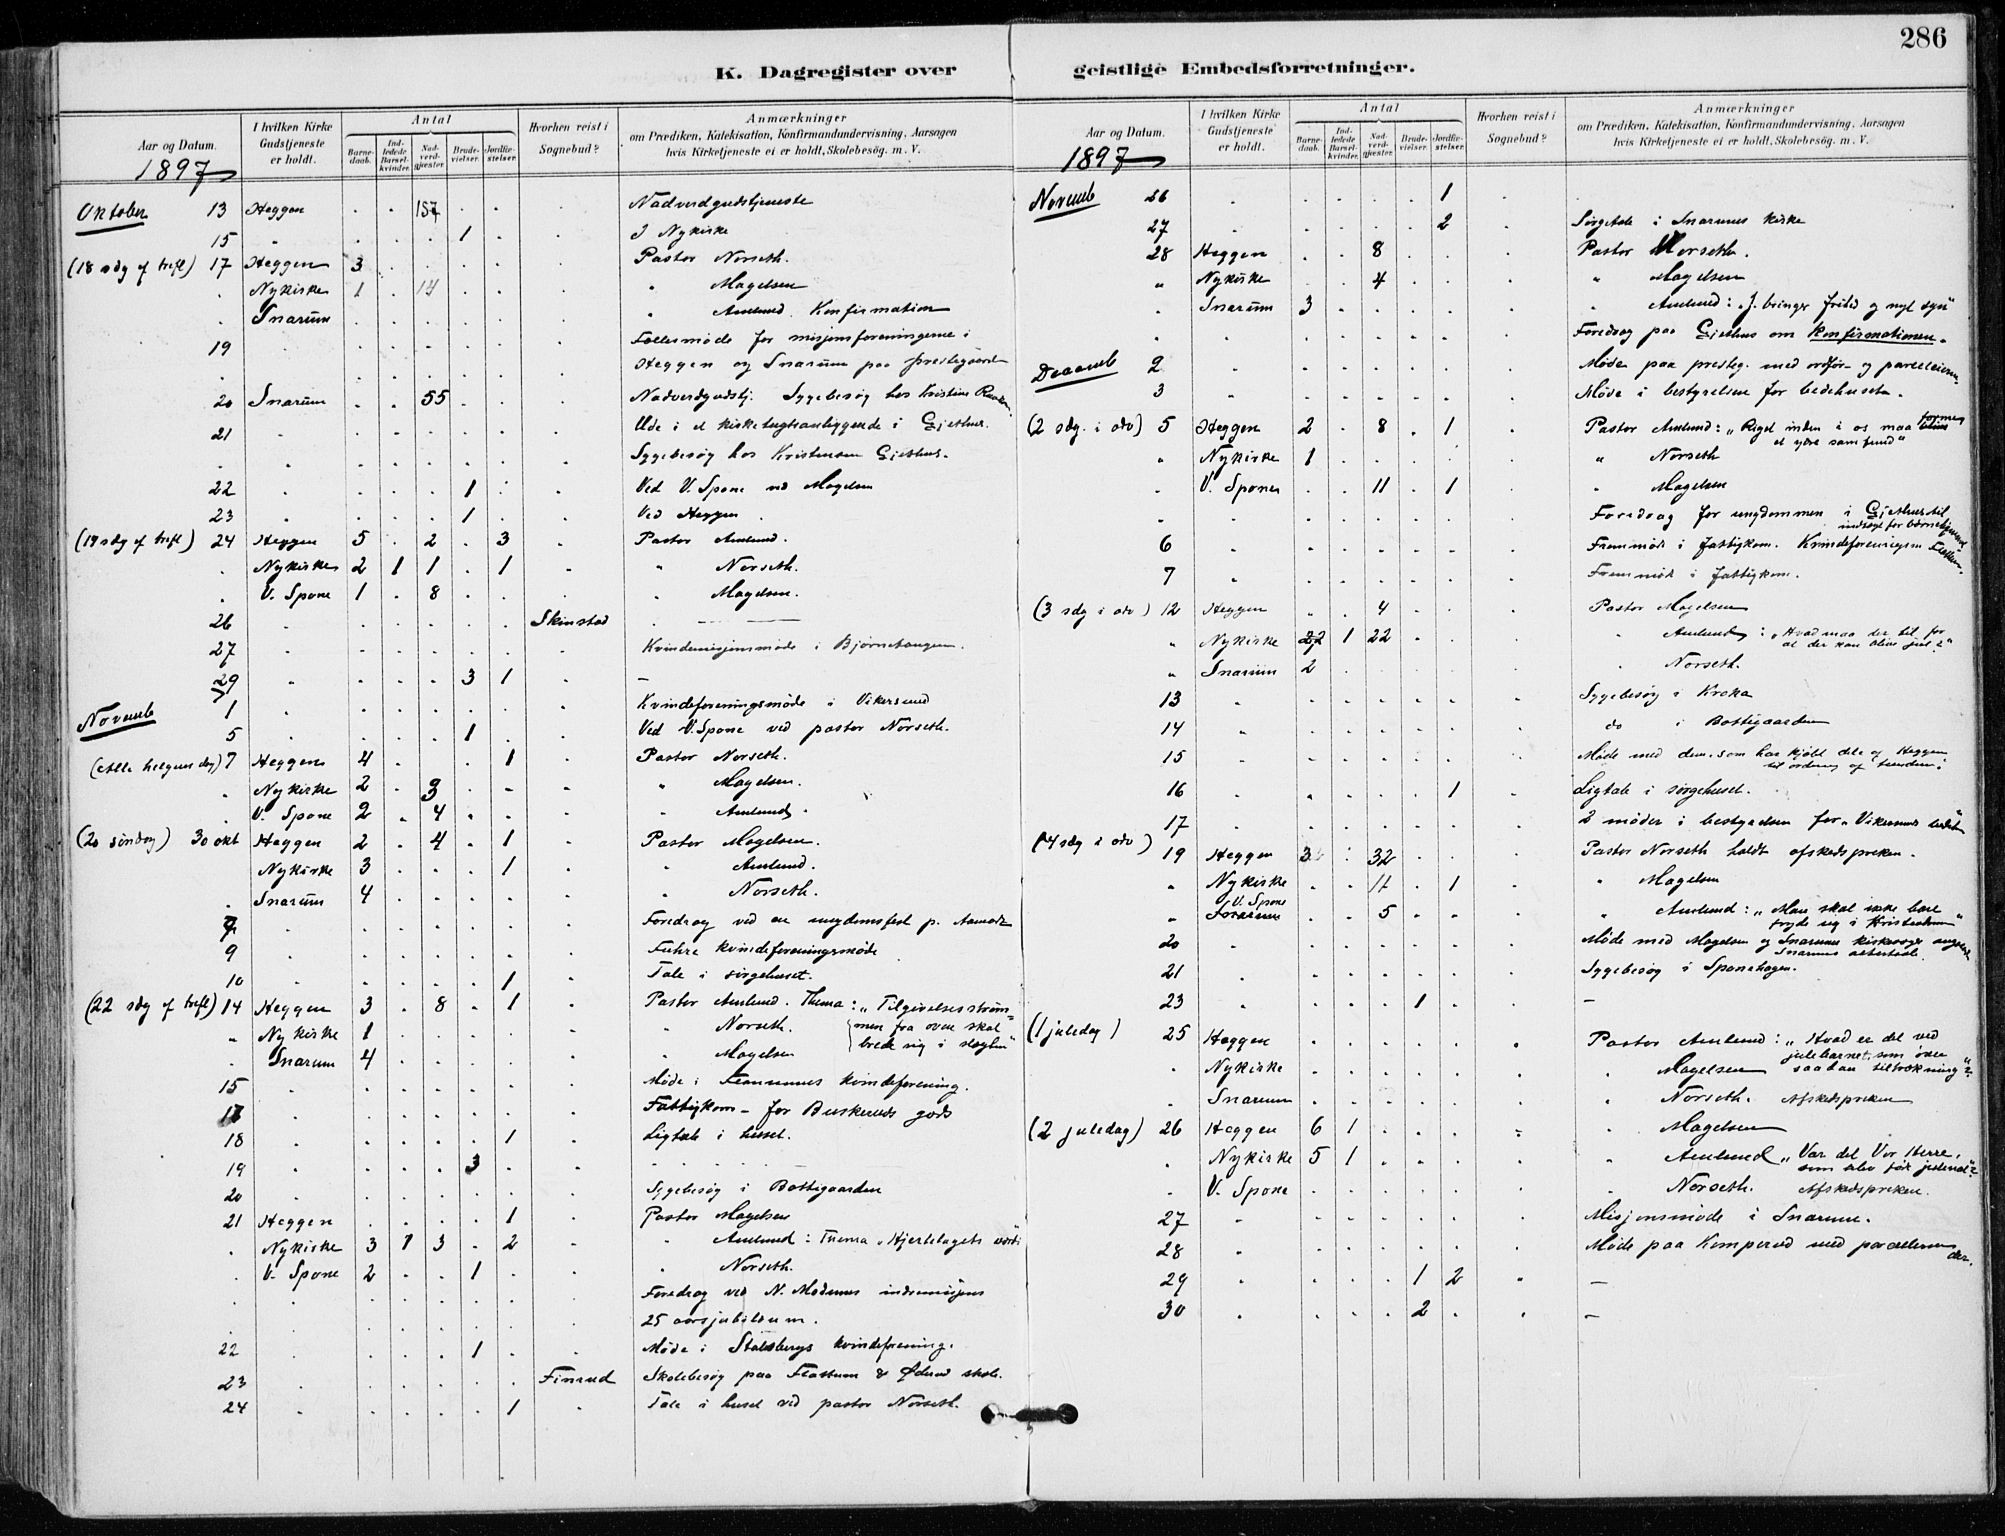 286
K. Dagregister over geistlige Embedsforretninger.
Aar og Datum.
I hvilken Kirke Gudstjeneste er holdt.
Antal
Barnedaab.
Indledede Barselkvinder.
Nadverdgjester.
Brudevielser.
Jordfæstelser.
Hvorhen reist i Sognebud?
Anmærkninger
om Prædiken, Katekisation, Konfirmandundervisning, Aarsagen
hvis Kirketjeneste ei er holdt, Skolebesøg. m. V.
1897
Oktober 13 Heggen . . 157 . . Nadverdgudstjeneste
15 " . . . 1 . . I Nykirke
(18 sdg ef trefl) 17 Heggen 3 . . . . Pastor Norseth.
. Nykirke 1 . 14 . . . " Magelsen
. Snarum . . . . . . " Amlund. Konfirmation
19 . . . . . . . Fællesmøde for misjonsforeningerne i
. . . . . . . Heggen og Snarum paa prestegaard
20 Snarum . . 55 . . . Nadverdgudstj. Sygebesøg hos Kristine
21 . . . . . . . Ude i et kirketugtsanliggende i Gjethus.
. . . . . . . . Sygebesøg hos Kristensen Gjethus.
22 . . . . 1 . . Ved V. Spone ved Magelsen
23 . . . . 1 . . Ved Heggen
(19 sdg ef trefl) 24 Heggen 5 . 2 . 3 . Pastor Amlund.
. Nykirke 2 1 1 . 1 . " Norseth.
. V. Spone 1 . 8 . . . " Magelsen.
26 . . . . . . Skinstad
27 . . . . . . . Kvindemisjonsmøde i Bjørnehaugen.
29 . . . . 3 1 . –
Novemb 1 . . . . . . . Kvindeforeningsmøde i Vikersund
5 . . . . 1 . . Ved V. Spone ved pastor Norseth.
(Alle helgens dag) 7 Heggen 4 . . . 1 . Pastor Norseth.
. Nykirke 2 . 3 . . . " Magelsen.
. V. Spone 2 . 4 . . . " Amlund.
(20 søndag) 30 okt Heggen 2 . 4 . 1 . Pastor Magelsen.
Nykirke 3 . . . 1 . " Amlund.
. Snarum 4 . . . . . " Norseth.
7 . . . . . . . Foredrag ved en ungdomsfest p. Aamodt
9 . . . . . . . Fuhre kvindeforeningsmøde
10 . . . . . 1 . Tale i sørgehuset.
(22 sdg ef trefl) 14 Heggen 3 . 8 . 1 . Pastor Amlund. Thema: „Tilgivelsesstrøm=
" Nykirke 1 . . . . . " Norseth. men fra oven skal
" Snarum 4 . . . . . " Magelsen brede sig i slegten"
15 . . . . . . . Møde i kvindeforening.
17 . . . . . . . Fattigkom– for Buskeruds gods
18 . . . . . 1 . Ligtale i huset.
19 . . . . 3 . .
20 . . . . . . . Sygebesøg i Bottegaarden
21 Heggen . . . . 1 . Pastor Magelsen
. Nykirke 3 1 3 . 2 . " Amlund: Thema „Hjertelagets
. V. Spone 2 . . 1 . . " Norseth.
. . . . . . . Foredrag ved N. Modums indremisjons
. . . . . . . 25 aarsjubilæum.
22 . . . . 1 . . Møde i Stalsbergs kvindeforening.
23 . . . . . . Finrud Skolebesøg paa & skole.
24 . . . . . 1 . Tale i huset ved pastor Norseth.
Aar og Datum.
I hvilken Kirke Gudstjeneste er holdt.
Antal
Barnedaab.
Indledede Barselkvinder.
Nadverdgjester.
Brudevielser.
Jordfæstelser.
Hvorhen reist i Sognebud?
Anmærkninger
om Prædiken, Katekisation, Konfirmandundervisning, Aarsagen
hvis Kirketjeneste ei er holdt, Skolebesøg. m. V.
1897
Novemb 26 . . . . . 1 .
27 . . . . . 2 . Sørgetale i Snarums kirke
28 Heggen . . 8 . . . Pastor Norseth.
" Nykirke . . 4 . . . " Magelsen
" Snarum 3 . . . . . " Amlund: „J. bringer frihed og nyt syn"
. . . . . . . . Foredrag paa Gjethus om Konfirmationen.
Decemb 2 . . . . . . . Møde paa presteg. med ordfør. og parceleierne.
3 . . . . . . . Møde i bestyrelsen for bedehuset.
(2 sdg. i adv) 5 Heggen 2 . 8 . 1 . Pastor Amlund: „Riget inden i os maa forme
et ydre samfund"
" Nykirke 1 . . . . . " Norseth
. V. Spone . . 11 . 1 . " Magelsen
. . . . . . . . Foredrag for ungdommen i Gjethus til
indtægt for børnehjemmet
6 . . . . . . . Fremmøde i fattigkom. Kvindeforeningen
7 . . . . . . . Fremmøde i fattigkom.
(3 sdg i adv) 12 Heggen . . 4 . . . Pastor Magelsen
" Nykirke 2 1 22 . . . " Amlund: „Hvad maa der til for
at der kan blive jul?"
" Snarum 2 . . . . . " Norseth.
13 . . . . . . . Sygebesøg i Kroka
14 . . . . . . . do i Bottegaarden
15 . . . . . . . Møde med dem, som har kjøbt dele af Heggen
til ordning af
16 . . . . . 1 . Ligtale i sørgehuset.
17 . . . . . . . 2 møder i bestyrelsen for „Vikersunds
(4 sdg i adv) 19 Heggen 3 . 32 . . . Pastor Norseth holdt afskedspreken.
" Nykirke . . 11 . 1 . " Magelsen
" V. Spone . . 5 . . . " Amlund: „Man skal ikke bare
fryde sig i Kristendom"
20 . . . . . . . Møde med Magelsen og Snarums kirkeverge angaaende
Snarums
21 . . . . . . . Sygebesøg i Sponehagen.
23 . . . . 1 . . –
(1 juledag) 25 Heggen . . . . . . Pastor Amlund: „Hvad er det ved
julebarnet, som øver
. Nykirke . . . . . . " Magelsen saadan tiltrækning"?
. Snarum . . . . . . " Norseth. Afskedspreken
(2 juledag) 26 Heggen 6 1 . . . . " Magelsen
. Nykirke 5 1 . . . . " Amlund „Var det Vor Herre,
som blev født julenat"?
. V. Spone . . . . . . " Norseth. Afskedspreken.
27 . . . . . . . Misjonsmøde i Snarum.
28 . . . . . . . Møde paa Komperud med parceleierne der.
29 . . . . 1 2 . –
30 . . . . 2 . . –